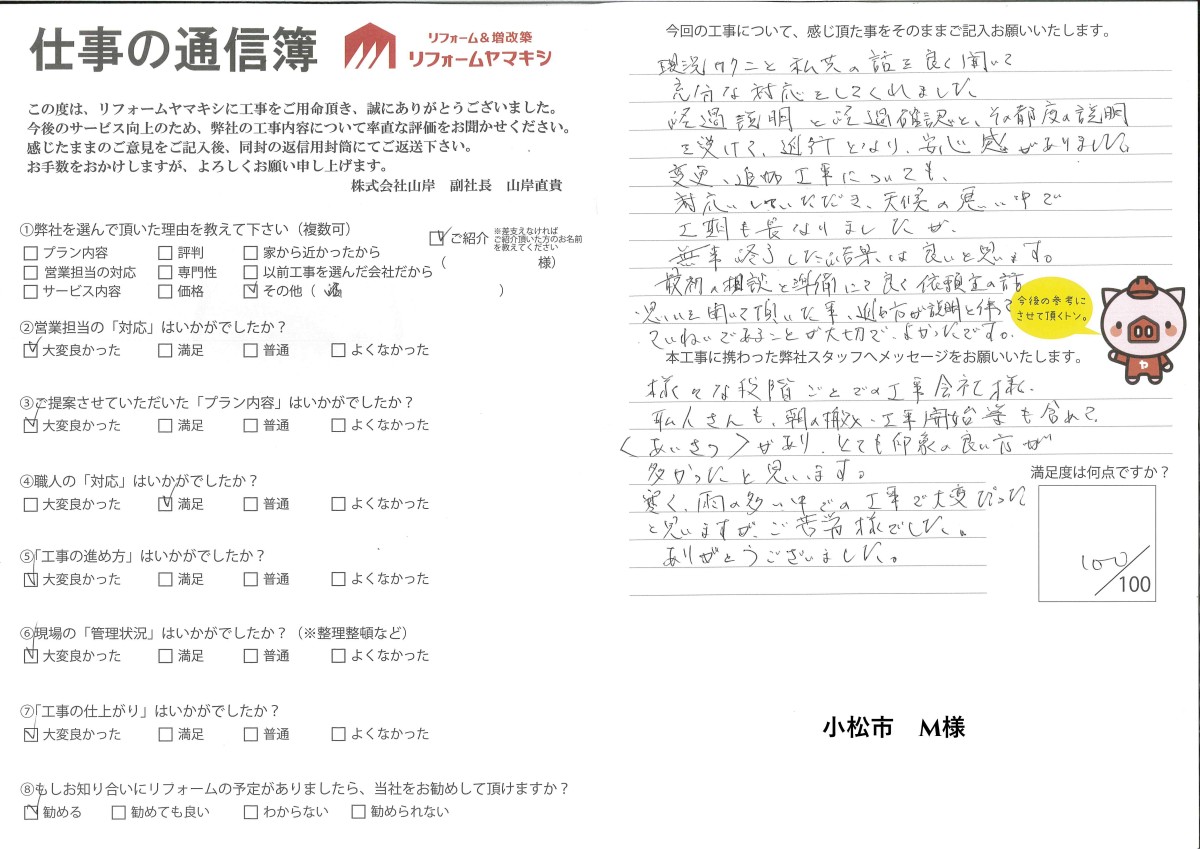 仕事の通信簿
リフォーム&増改築
リフォームヤマキシ
この度は、リフォームヤマキシに工事をご用命頂き、誠にありがとうございました。
今後のサービス向上のため、弊社の工事内容について率直な評価をお聞かせください。
感じたままのご意見をご記入後、同封の返信用封筒にてご返送下さい。
お手数をおかけしますが、よろしくお願い申し上げます。
株式会社山岸 副社長 山岸直貴
①弊社を選んで頂いた理由を教えて下さい（複数可）
プラン内容 評判 家から近かったから
営業担当の対応 専門性 以前工事を選んだ会社だから
サービス内容 価格 その他（ ）
ご紹介
※差支えなければ
ご紹介頂いた方のお名前
を教えてください
（ 様）
②営業担当の「対応」はいかがでしたか？
大変良かった 満足 普通 よくなかった
③ご提案させていただいた「プラン内容」はいかがでしたか？
大変良かった 満足 普通 よくなかった
④職人の「対応」はいかがでしたか？
大変良かった 満足 普通 よくなかった
⑤「工事の進め方」はいかがでしたか？
大変良かった 満足 普通 よくなかった
⑥現場の「管理状況」はいかがでしたか？（※整理整頓など）
大変良かった 満足 普通 よくなかった
⑦「工事の仕上がり」はいかがでしたか？
大変良かった 満足 普通 よくなかった
⑧もしお知り合いにリフォームの予定がありましたら、当社をお勧めして頂けますか？
勧める 勧めても良い わからない 勧められない
今回の工事について、感じ頂た事をそのままご記入お願いいたします。
現況 と私共の話を良く聞いて
充分な対応をしてくれました
経過説明と経過確認と、その都度の説明
を受けて、進行となり、安心感がありました。
変更、追加工事についても、
対応いただき、天候の悪い中で
工期も長くなりましたが、
無事終了した結果は良いと思います。
最初の相談と準備にて良く依頼主の話
思いを聞いて頂いた事、進め方が説明と伴って
ていねいであることが大切で、よかったです。
今後の参考に
させて頂くトン。
本工事に携わった弊社スタッフへメッセージをお願いいたします。
様々な段階ごとでの工事会社様、
職人さんも、朝の搬入、工事開始等も含めて、
〈あいさつ〉があり、とても印象の良い方が
多かったと思います。
寒く、雨の多い中での工事で大変だった
と思いますが、ご苦労様でした。
ありがとうございました。
満足度は何点ですか？
100/100
小松市 M様